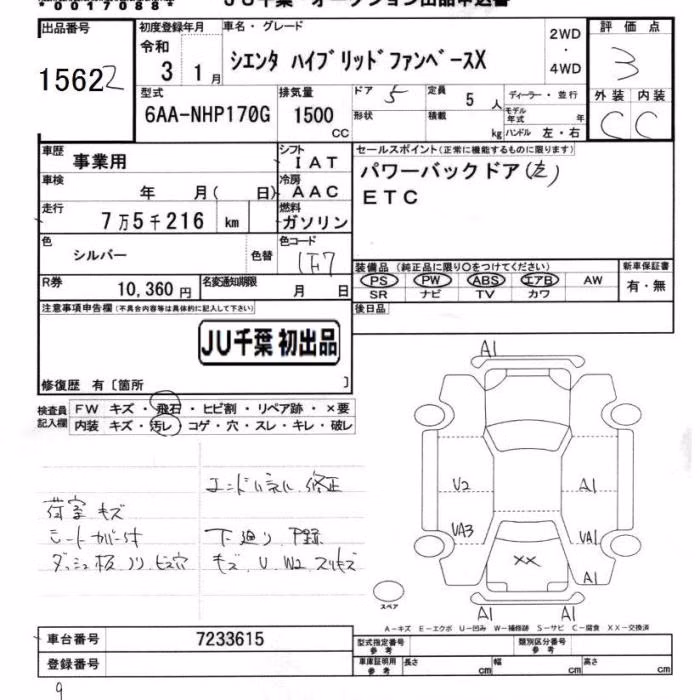 00170884
JU千葉 オークション出品申込書
出品番号 初度登録年月 車名・グレード 2WD・4WD 評価点
15622 令和 3 1月 シエンタ ハイブリッドファンベースX 3
型式 排気量 ドア 5 定員 5 人 ディーラー・並行 外装 内装
6AA-NHP170G 1500 CC 形状 積載 kg モデル年式 年 C C
ハンドル 左・右
車歴 事業用 シフト IAT セールスポイント(正常に機能するものに限ります)
車検 年 月( 日) 冷房 AAC パワーバックドア(左)
走行 7万5千216 km 燃料 ガソリン ETC
色 シルバー 色替 色コード 1F7
装備品(純正品に限り○をつけてください) 新車保証書
PS PW ABS エアB AW 有・無
SR ナビ TV カワ
R券 10,360円 名変通知期限 月 日
注意事項申告欄(不具合内容等は具体的に記入して下さい) 後日品
JU千葉 初出品
修復歴 有〔箇所 〕
検査員記入欄 FW キズ・飛石・ヒビ割・リペア跡・×要
内装 キズ・汚レ・コゲ・穴・スレ・キレ・破レ
エンドパネル 修正
荷室キズ
シートカバー付 下廻り
ダッシュ板ノリ,ビス穴 キズ,U,W2,スリキズ
A1
U2 A1
UA3 UA1
XX A1
A1 A1
スペア
A-キズ E-エクボ U-凹み W-補修跡 S-サビ C-腐食 XX-交換済
車台番号 7233615 型式指定番号 参考 類別区分番号 参考
登録番号 車庫証明用 参考 長さ cm 幅 cm 高さ cm
9